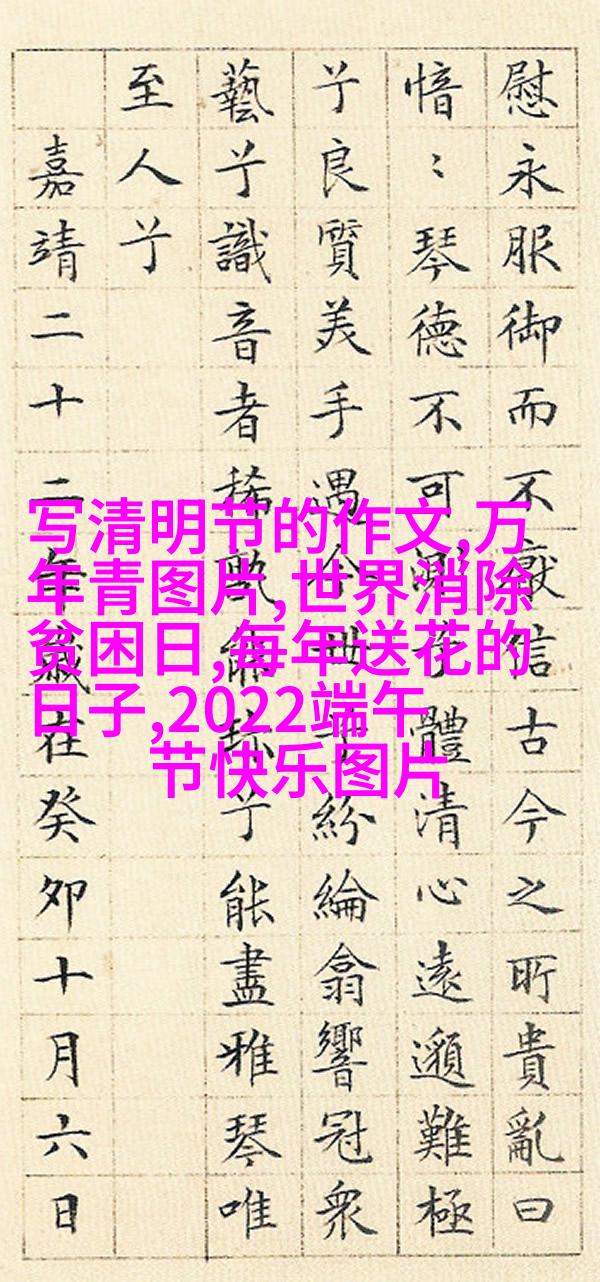 慰永服御而不厭信古今之所貴亂曰
愔〻琴德不可測兮體清心遠邈難極
兮良質美手遇今世兮紛綸翕響冠衆
藝兮識音者稀孰能珍兮能盡雅琴唯
至人兮
嘉靖二十二年歲在癸卯十月六日
写清明节的作文,万
年青图片,世界消除
贫困日,每年送花的
日子,2022端午
节快乐图片